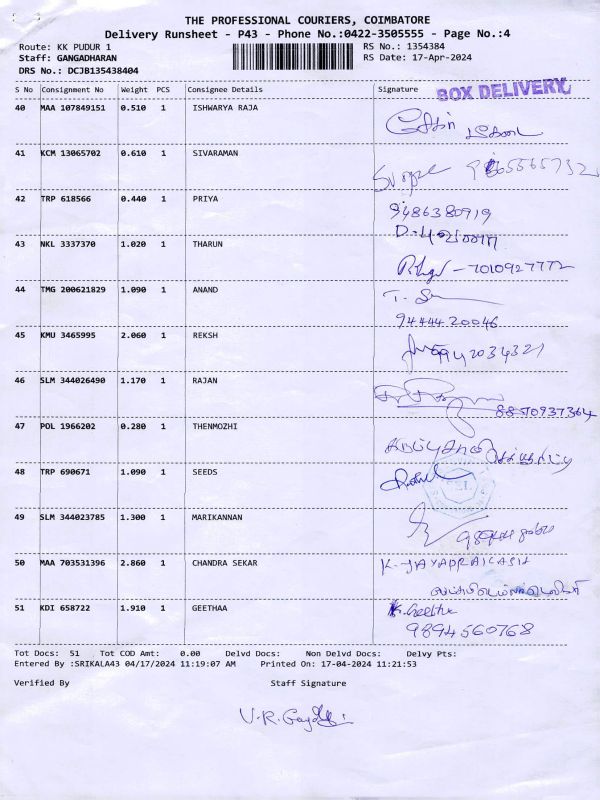 THE PROFESSIONAL COURIERS, COIMBATORE
Delivery Runsheet - P43 - Phone No.:0422-3505555 - Page No.:4
Route: KK PUDUR 1 RS No.: 1354384
Staff: GANGADHARAN RS Date: 17-Apr-2024
DRS No.: DCJB135438404
S No Consignment No Weight PCS Consignee Details Signature BOX DELIVERY
40 MAA 107849151 0.510 1 ISHWARYA RAJA
41 KCM 13065702 0.610 1 SIVARAMAN
42 TRP 618566 0.440 1 PRIYA
9486380919
43 NKL 3337370 1.020 1 THARUN
7010927772
44 TMG 200621829 1.090 1 ANAND
9444420046
45 KMU 3465995 2.060 1 REKSH
46 SLM 344026490 1.170 1 RAJAN
8870937364
47 POL 1966202 0.280 1 THENMOZHI
48 TRP 690671 1.090 1 SEEDS
49 SLM 344023785 1.300 1 MARIKANNAN
50 MAA 703531396 2.860 1 CHANDRA SEKAR
K. JAYAPRAKASH
51 KDI 658722 1.910 1 GEETHAA
K. Geetha
9894560768
Tot Docs: 51 Tot COD Amt: 0.00 Delvd Docs: Non Delvd Docs: Delvy Pts:
Entered By :SRIKALA43 04/17/2024 11:19:07 AM Printed On: 17-04-2024 11:21:53
Verified By Staff Signature